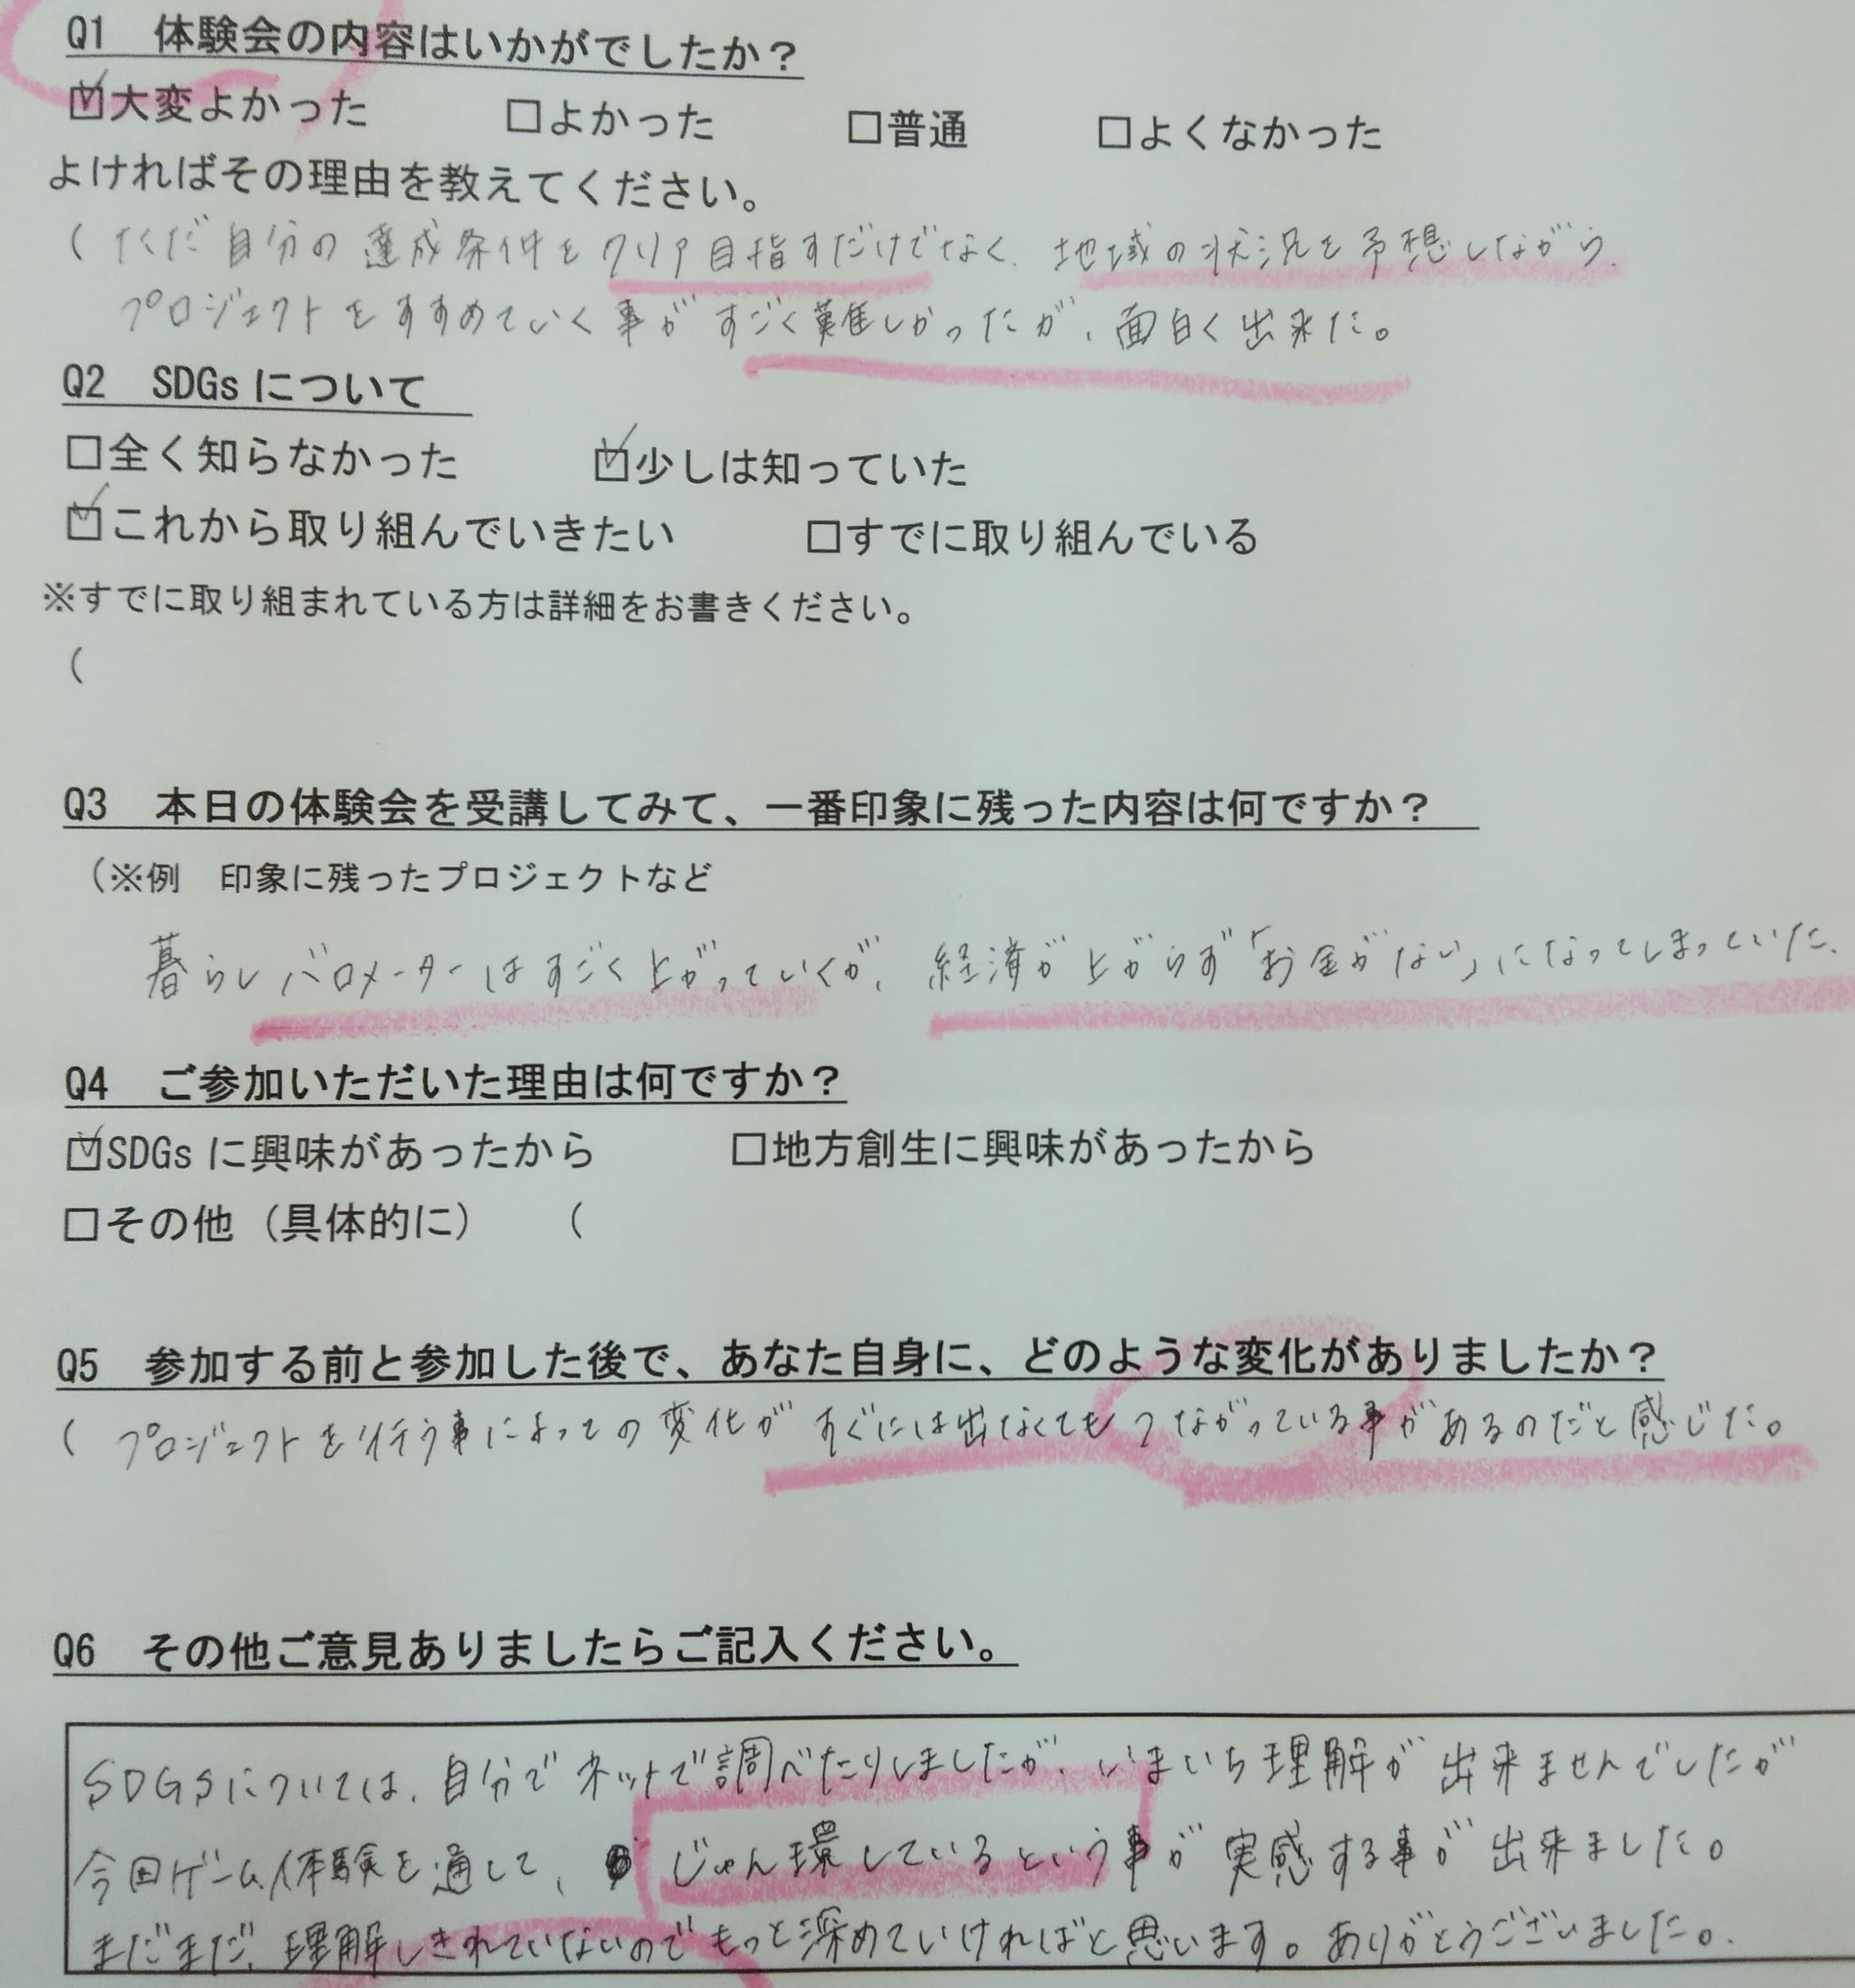 Q1　体験会の内容はいかがでしたか？
☑大変よかった　□よかった　□普通　□よくなかった
よければその理由を教えてください。
（ただ自分の達成条件をクリア目指すだけでなく、地域の状況を予想しながら、
プロジェクトをすすめていく事がすごく難しかったが、面白く出来た。
Q2　SDGsについて
□全く知らなかった　☑少しは知っていた
☑これから取り組んでいきたい　□すでに取り組んでいる
※すでに取り組まれている方は詳細をお書きください。
（
Q3　本日の体験会を受講してみて、一番印象に残った内容は何ですか？
（※例　印象に残ったプロジェクトなど
暮らしバロメーターはすごく上がっていくが、経済が上がらず「お金がない」になってしまっていた、
Q4　ご参加いただいた理由は何ですか？
☑SDGsに興味があったから　□地方創生に興味があったから
□その他（具体的に）　（
Q5　参加する前と参加した後で、あなた自身に、どのような変化がありましたか？
（プロジェクトを行う事によっての変化がすぐには出なくてもつながっている事があるのだと感じた。
Q6　その他ご意見ありましたらご記入ください。
SDGsについては、自分でネットで調べたりしましたが、いまいち理解が出来ませんでしたが
今回ゲーム体験を通して、じゅん環しているという事が実感する事が出来ました。
まだまだ、理解しきれていないのでもっと深めていければと思います。ありがとうございました。